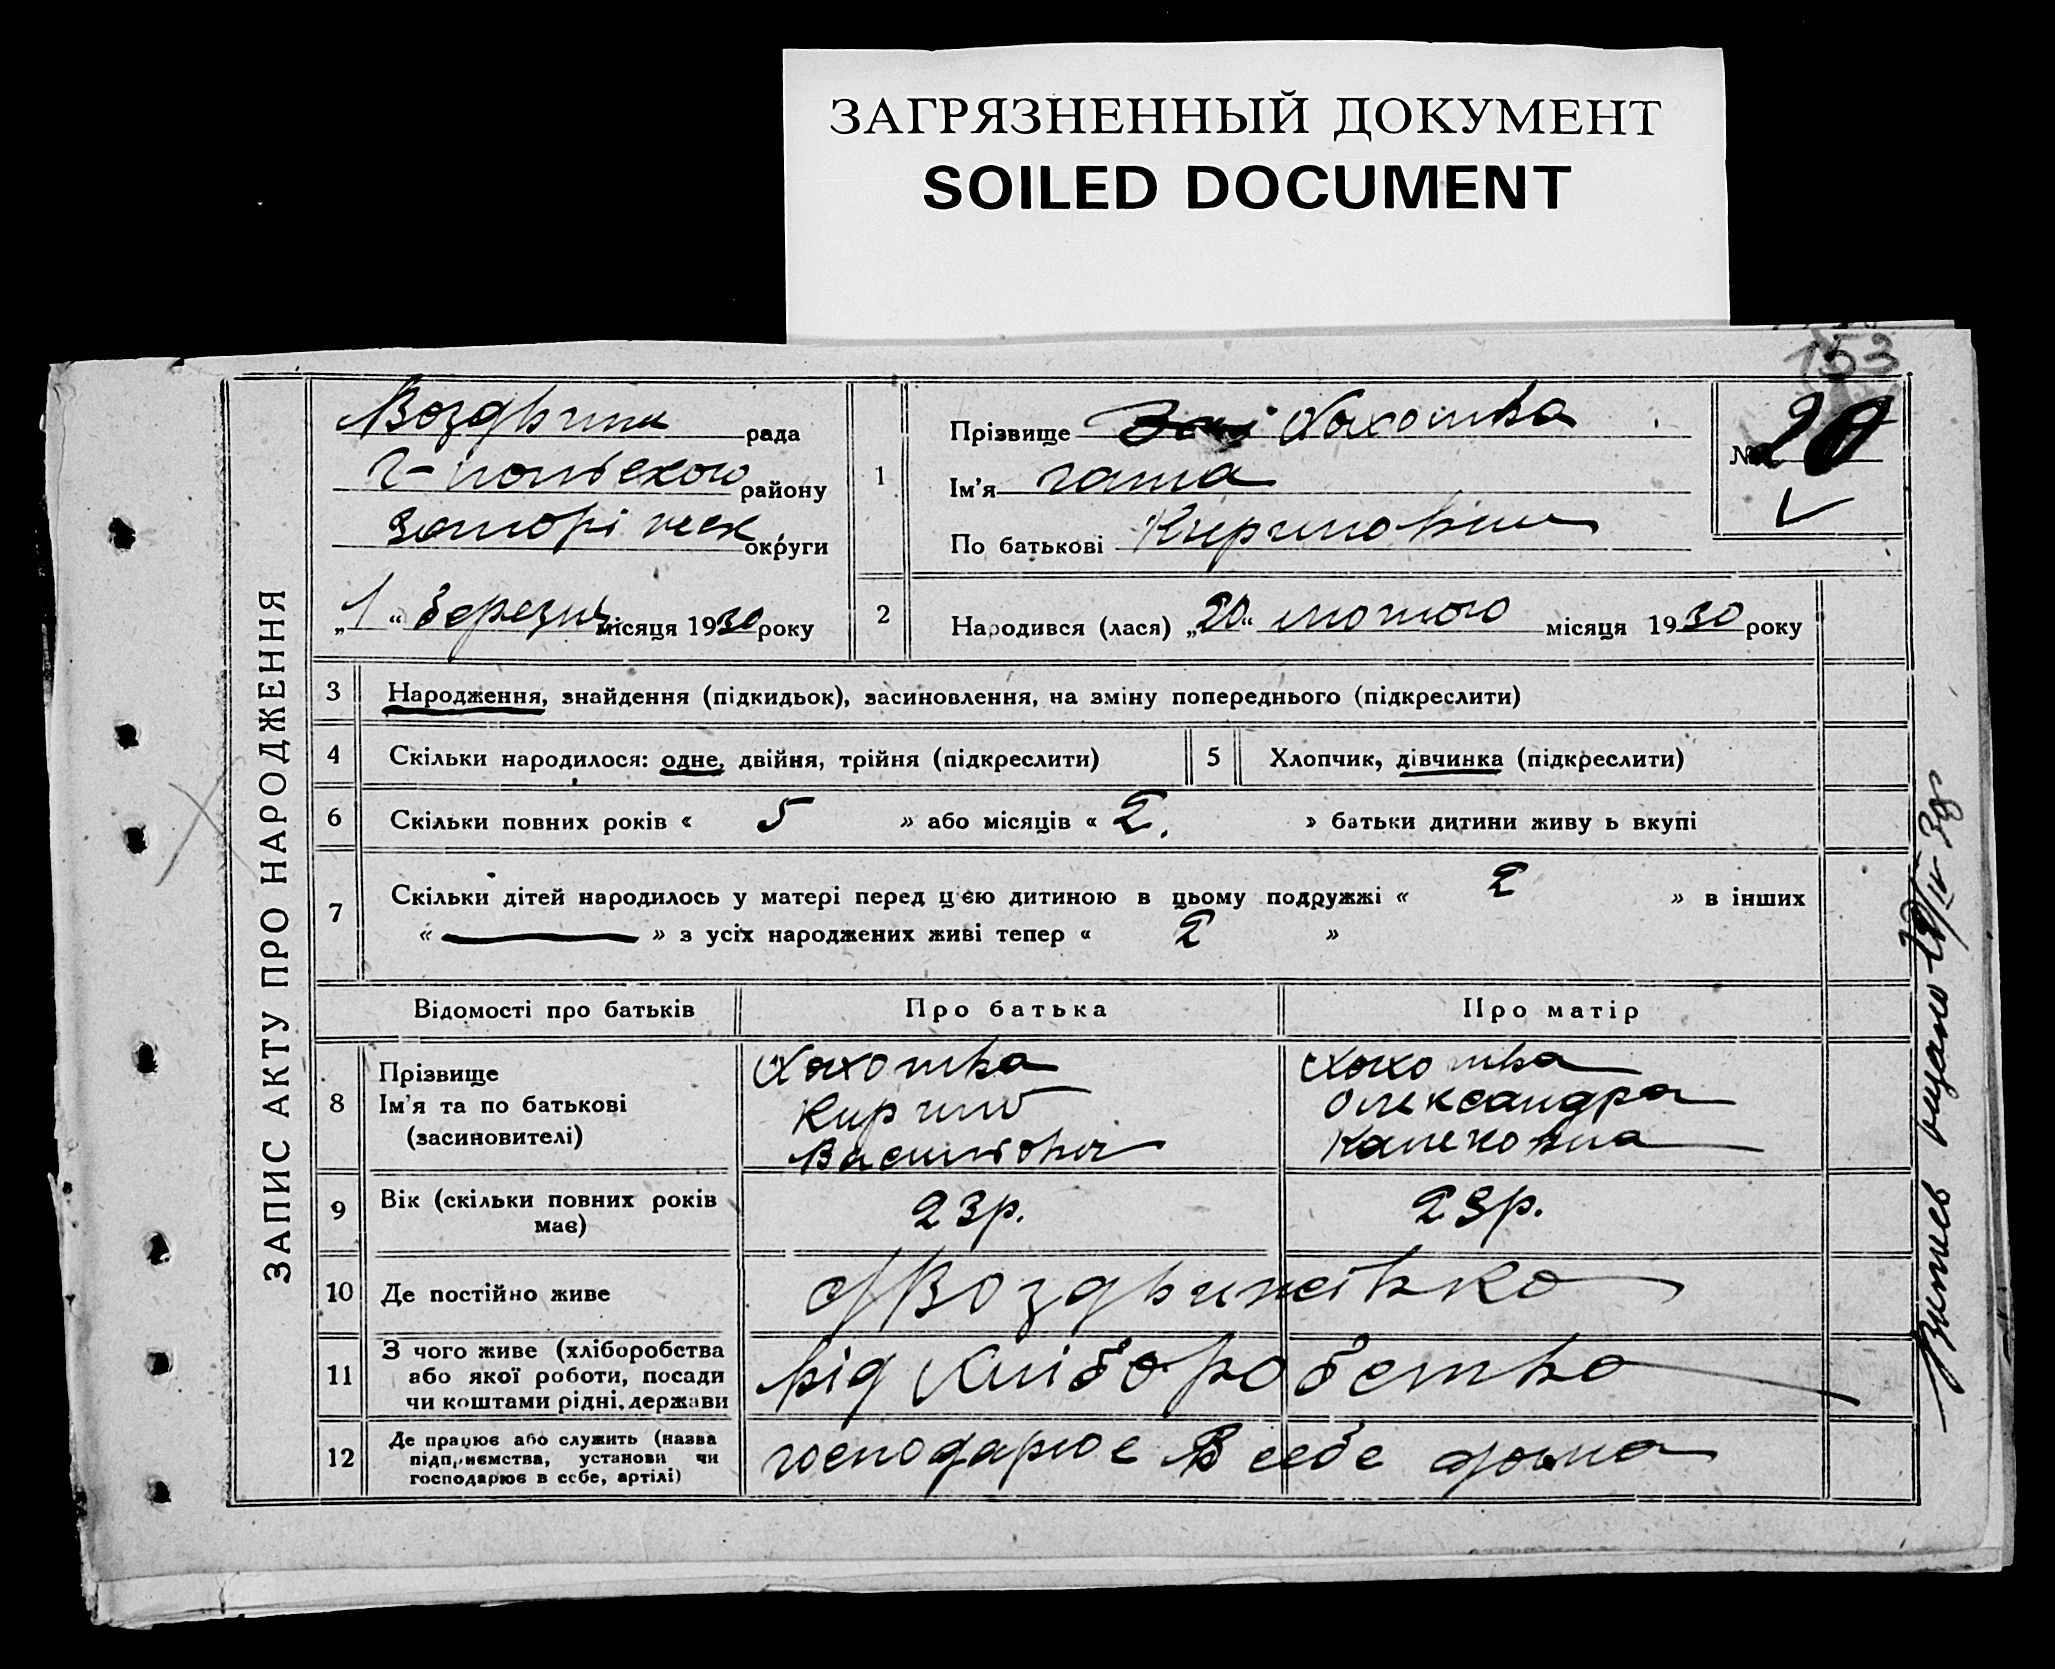 ЗАГРЯЗНЕННЫЙ ДОКУМЕНТ
SOILED DOCUMENT
153
ЗАПИС АКТУ ПРО НАРОДЖЕННЯ
рада
району
округи
„1“ березня місяця 1930 року
1 Прізвище Хохотва
Ім'я
По батькові
№ 20
2 Народився (лася) „20“ лютого місяця 1930 року
3 Народження, знайдення (підкидьок), засиновлення, на зміну попереднього (підкреслити)
4 Скільки народилося: одне, двійня, трійня (підкреслити) 5 Хлопчик, дівчинка (підкреслити)
6 Скільки повних років « 5 » або місяців « 2. » батьки дитини живу ь вкупі
7 Скільки дітей народилось у матері перед цією дитиною в цьому подружжі « 2 » в інших
« — » з усіх народжених живі тепер « 2 »
Відомості про батьків Про батька Про матір
8 Прізвище Хохотва Хохотва
Ім'я та по батькові Кирило Олександра
(засиновителі) Васильович
9 Вік (скільки повних років має) 23р. 23р.
10 Де постійно живе Воздвижівка
11 З чого живе (хліборобства
або якої роботи, посади
чи коштами рідні, держави
від хліборобства
12 Де працює або служить (назва
підприємства, установи чи
господарює в себе, артілі)
господарює в себе дома